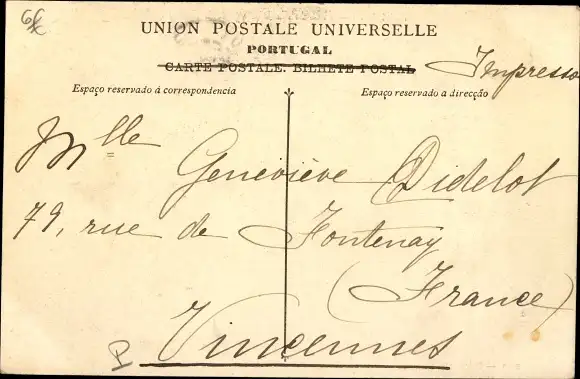 UNION POSTALE UNIVERSELLE
PORTUGAL
CARTE POSTALE. BILHETE POSTAL Impresso
Espaço reservado á correspondencia
Espaço reservado a direcção
Mlle Geneviève Didelot
79, rue de Fontenay
(France)
Vincennes